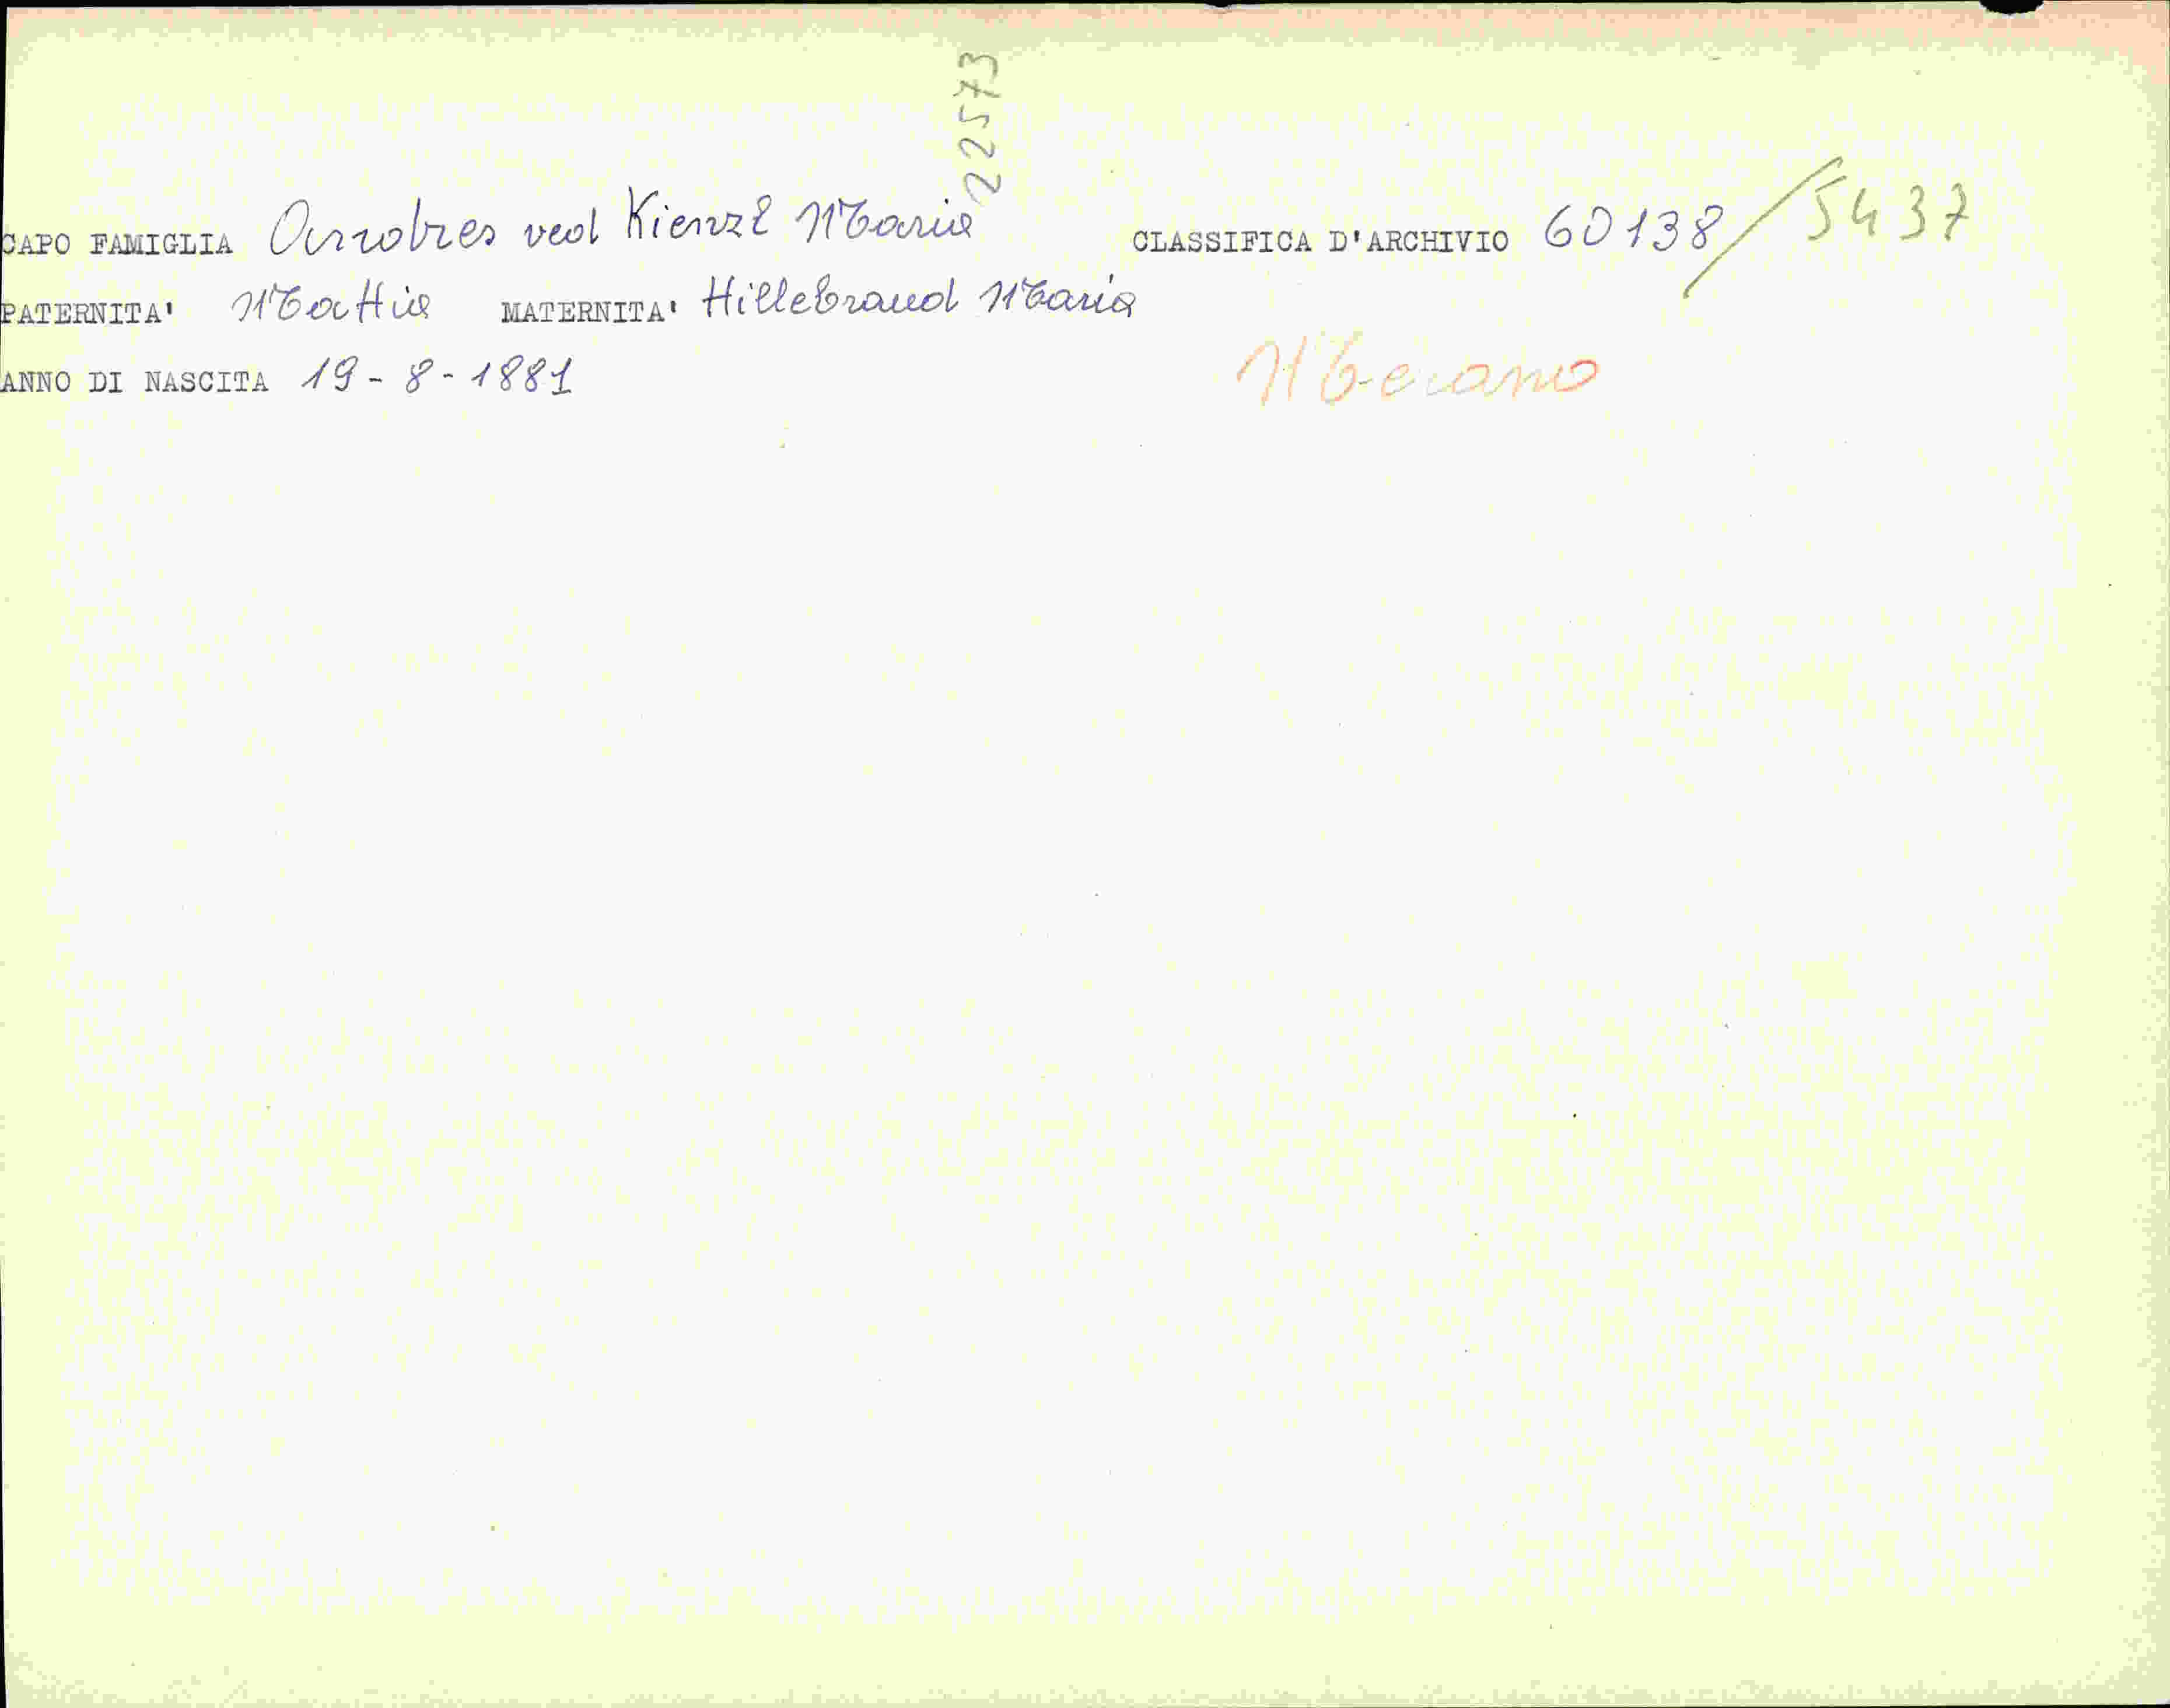 225573
CAPO FAMIGLIA Andres ved Kienzl Maria CLASSIFICA D'ARCHIVIO 60138/5437
PATERNITA' Mattia MATERNITA' Hillebrand Maria
ANNO DI NASCITA 19-8-1881 Merano